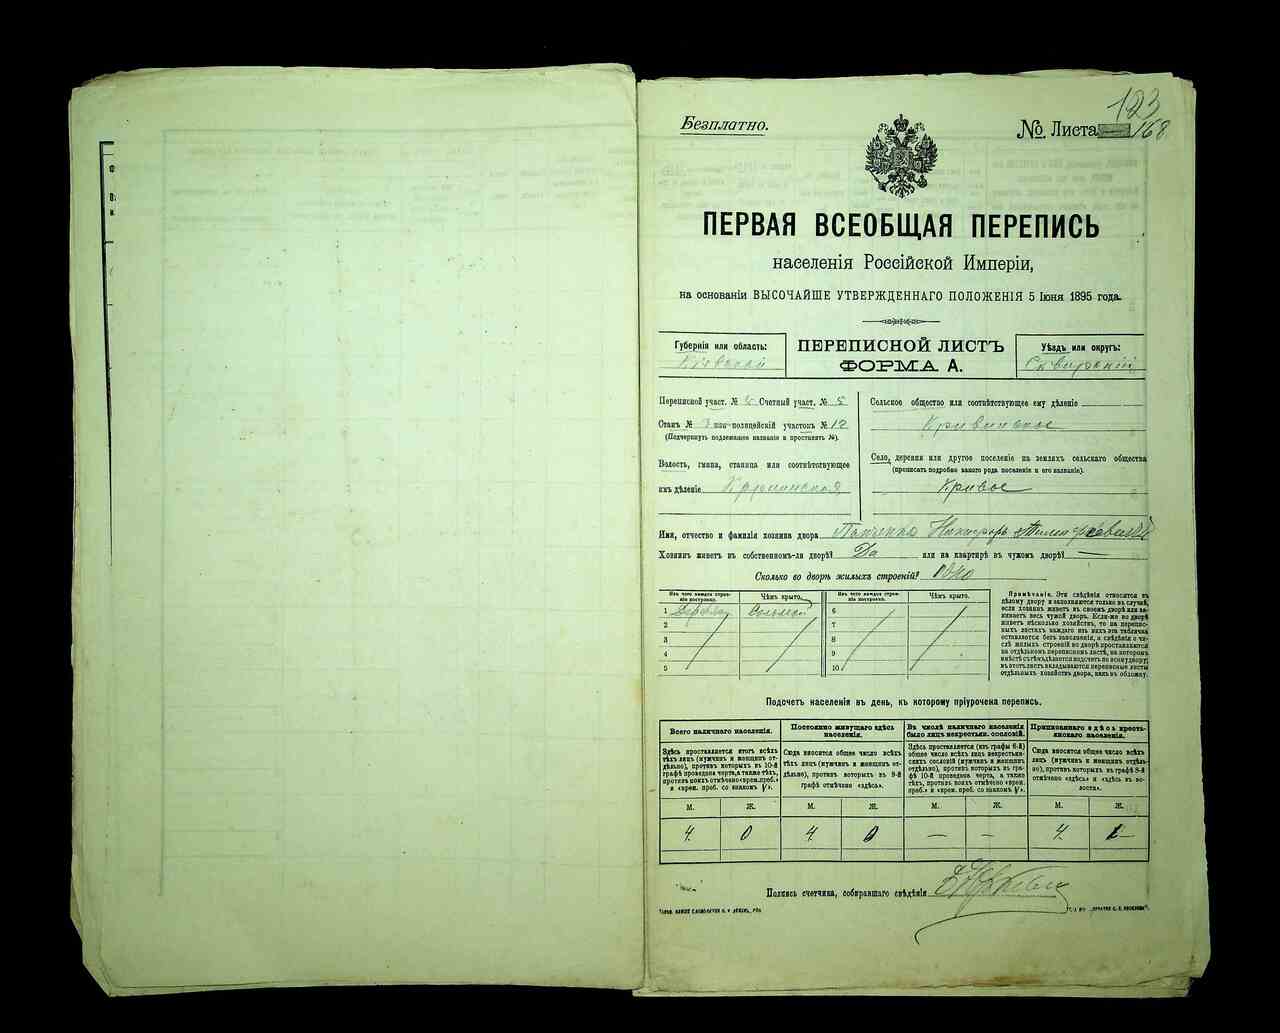 123
Безплатно.
№ Листа 168
ПЕРВАЯ ВСЕОБЩАЯ ПЕРЕПИСЬ
населенія Россійской Имперіи,
на основаніи ВЫСОЧАЙШЕ УТВЕРЖДЕННАГО ПОЛОЖЕНІЯ 5 Іюня 1895 года.
Губернія или область:
Кіевской
ПЕРЕПИСНОЙ ЛИСТЪ
ФОРМА А.
Уѣздъ или округъ:
Сквирскій
Переписной участ. № 5 Счетный участ. № 5
Станъ № 3 или полицейскій участокъ № 12
(Подчеркнуть подлежащее названіе и проставить №).
Волость, гмина, станица или соотвѣтствующее
имъ дѣленіе
Сельское общество или соотвѣтствующее ему дѣленіе
Кривинское
Село, деревня или другое поселеніе на земляхъ сельскаго общества
(прописать подробно какого рода поселеніе и его названіе).
Кривое
Имя, отчество и фамилія хозяина двора Никифоръ
Хозяинъ живетъ въ собственномъ-ли дворѣ? Да или на квартирѣ въ чужомъ дворѣ? —
Сколько во дворѣ жилыхъ строеній? одно
Изъ чего каждое строеніе построено.
Чѣмъ крыто.
Изъ чего каждое строеніе построено.
Чѣмъ крыто.
1 Соломой
6
2
7
3
8
4
9
5
10
Примѣчаніе. Эти свѣдѣнія относятся къ
цѣлому двору и заполняются только въ случаѣ,
если хозяинъ живетъ въ своемъ дворѣ или за-
нимаетъ весь чужой дворъ. Если-же во дворѣ
живетъ нѣсколько хозяйствъ, то на перепис-
ныхъ листахъ каждаго изъ нихъ эта табличка
оставляется безъ заполненія, а свѣдѣнія о чи-
слѣ жилыхъ строеній во дворѣ проставляются
на отдѣльномъ переписномъ листѣ, на которомъ
вмѣстѣ съ тѣмъ дѣлается подсчетъ по всему двору;
въ этотъ листъ вкладываются переписные листы
отдѣльныхъ хозяйствъ двора, какъ въ обложку.
Подсчетъ населенія въ день, къ которому пріурочена перепись.
Всего наличнаго населенія.
Постоянно живущаго здѣсь населенія.
Въ числѣ наличнаго населенія было лицъ некрестьян. сословій.
Приписаннаго здѣсь крестьянскаго населенія.
Здѣсь проставляется итогъ всѣхъ
тѣхъ лицъ (мужчинъ и женщинъ от-
дѣльно), противъ которыхъ въ 10-й
графѣ проведена черта, а также тѣхъ,
противъ коихъ отмѣчено «врем. преб.»
и «врем. преб. со знакомъ V».
Сюда вносится общее число всѣхъ
тѣхъ лицъ (мужчинъ и женщинъ от-
дѣльно), противъ которыхъ въ 9-й
графѣ отмѣчено «здѣсь».
Здѣсь проставляется (изъ графы 6-й)
общее число всѣхъ лицъ некрестьян-
скихъ сословій (мужчинъ и женщинъ
отдѣльно), противъ которыхъ въ гра-
фѣ 10-й проведена черта, а также
тѣхъ, противъ коихъ отмѣчено «врем.
преб.» и «врем. преб. со знакомъ V».
Сюда вносится общее число всѣхъ
лицъ (мужчинъ и женщинъ отдѣль-
но), противъ которыхъ въ графѣ 8-й
отмѣчено «здѣсь» и «здѣсь въ во-
лости».
М. Ж. М. Ж. М. Ж. М. Ж.
4 0 4 0 — — 4
Подпись счетчика, собиравшаго свѣдѣнія